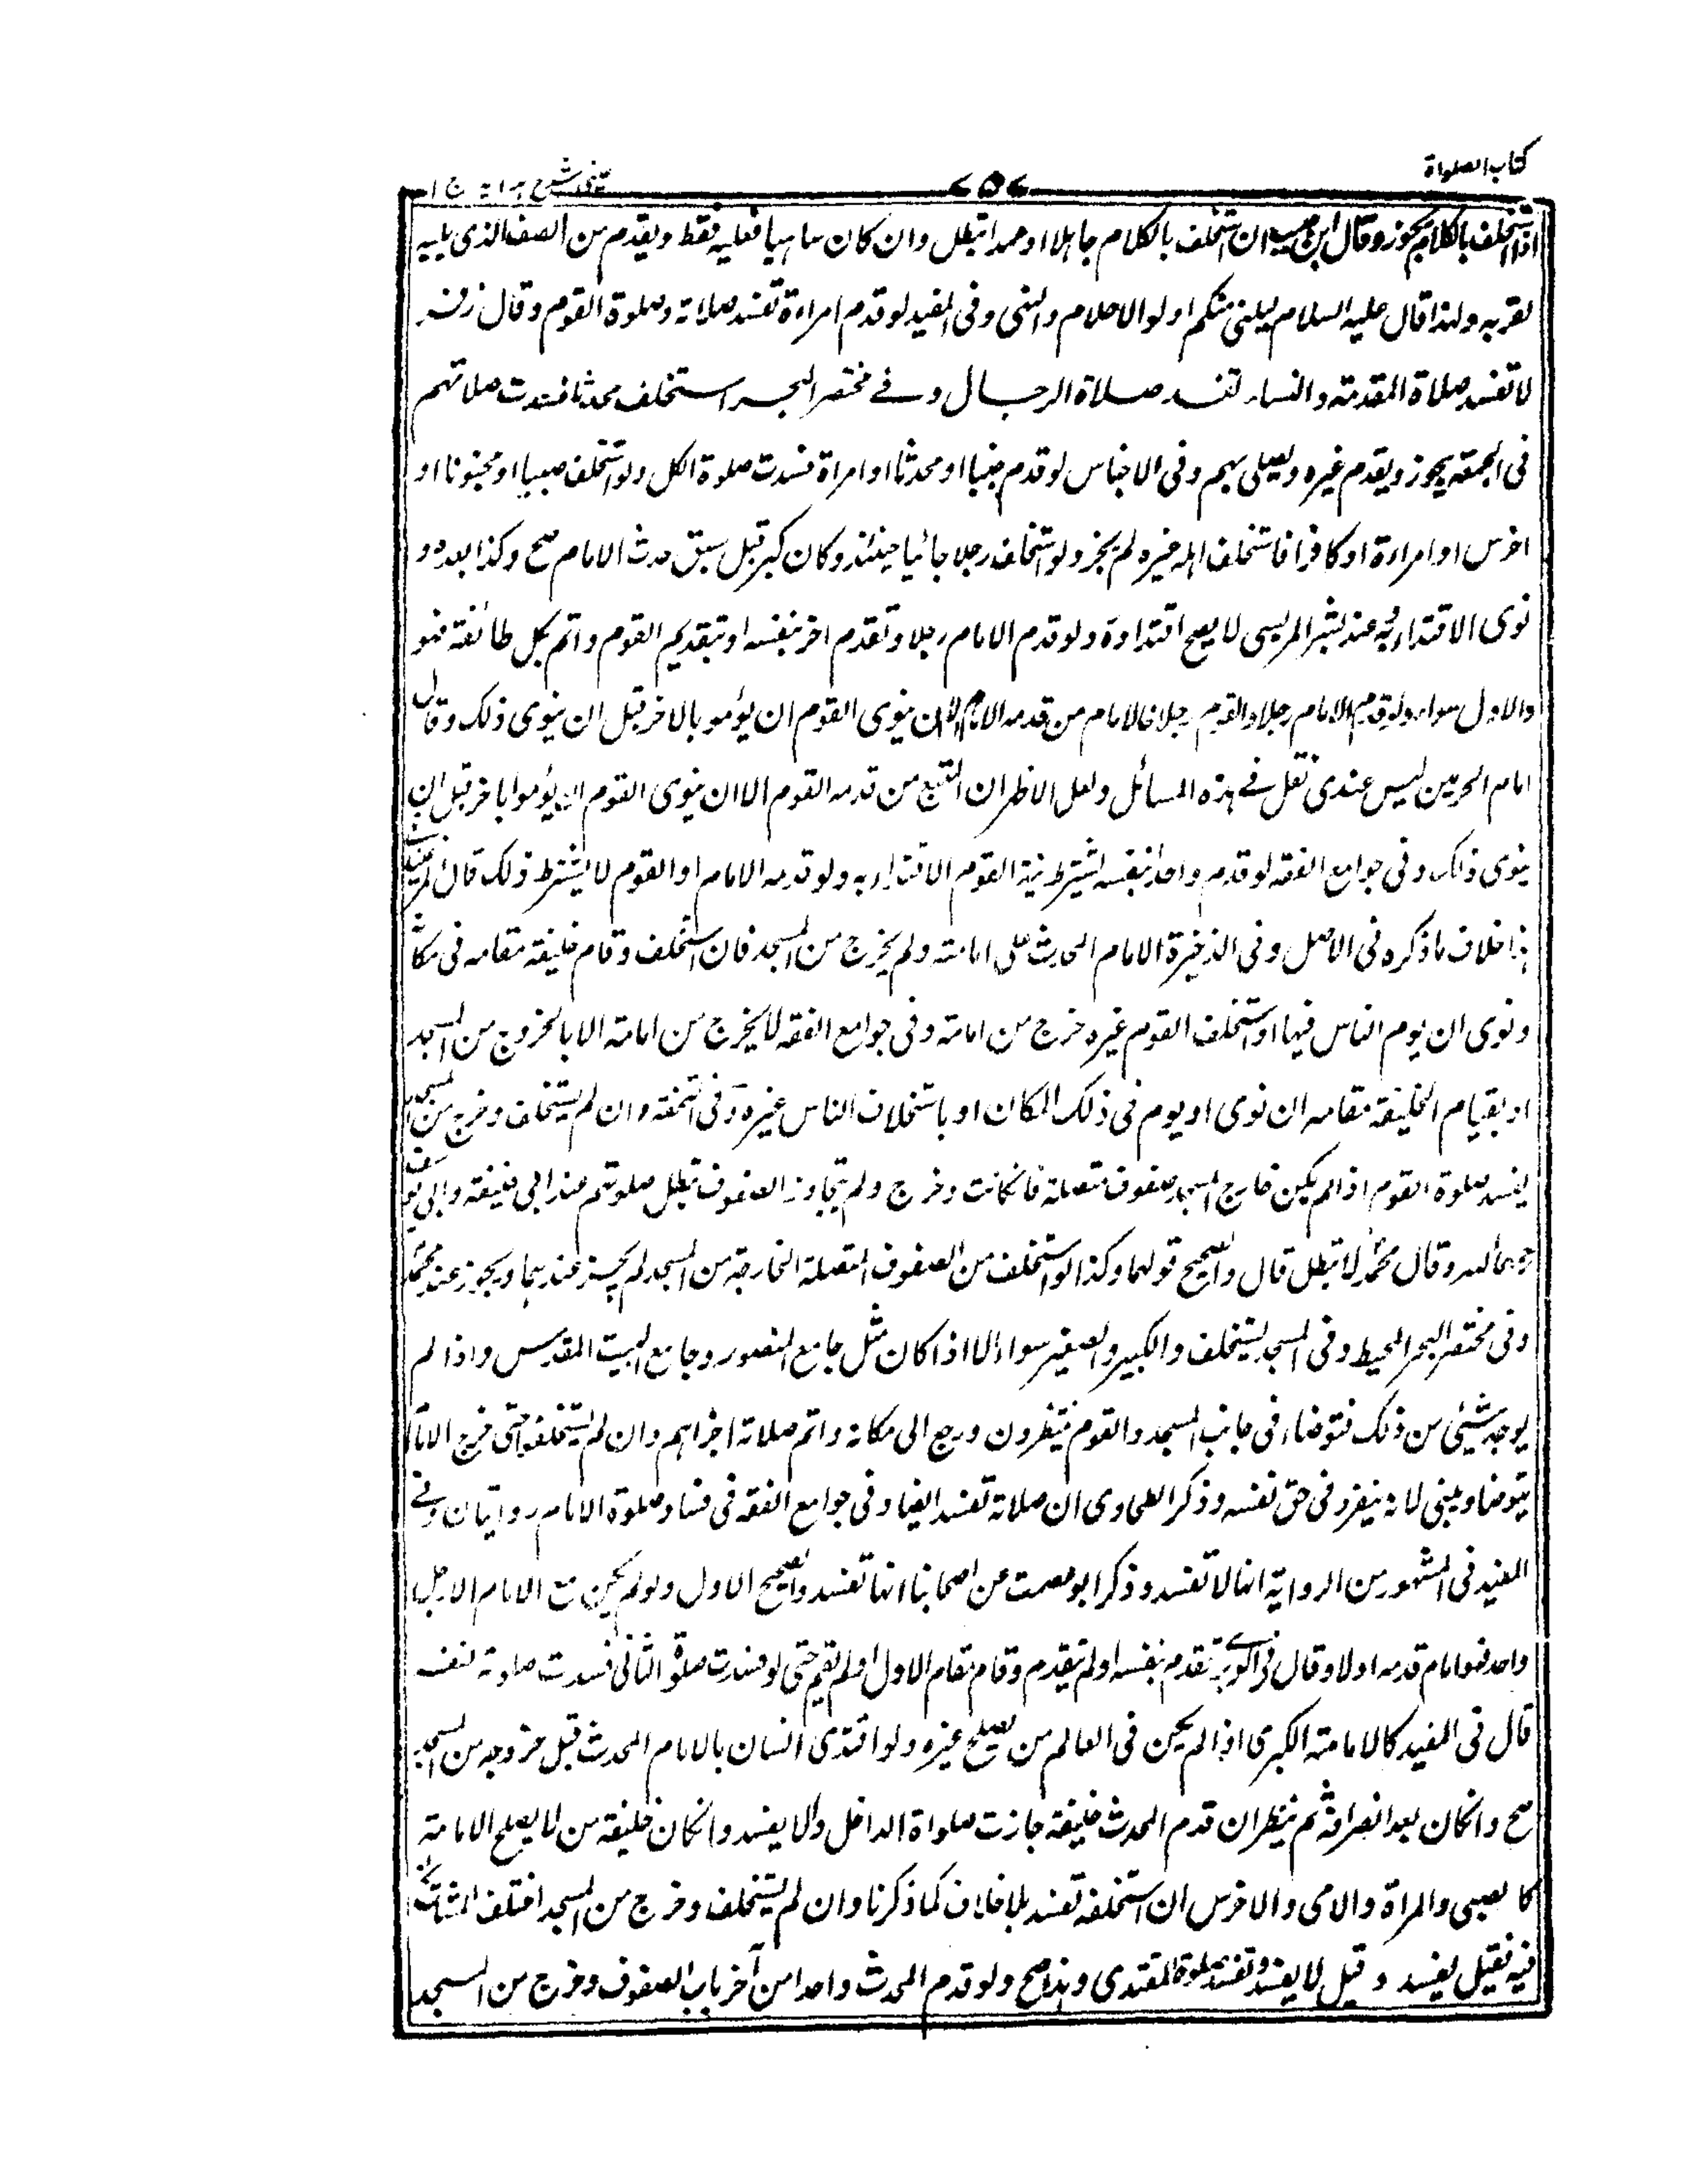 كتاب الصلواة
عينى شرح هداية ج ١
اذا استخلف بالكلام يجوز وقال ابن حبيب ان استخلف بالكلام جاهلا او عمدا تبطل وان كان ساهيا فعليه فقط ويقدم من الصف الذى يليه
لقربه ولهذا قال عليه السلام ليلنى منكم اولو الاحلام والنهى وفى المفيد لو قدم امراءة تفسد صلاته وصلوة القوم وقال زفر
لا تفسد صلاة المقدمة والنساء وتفسد صلاة الرجال وفے مختصر البحر استخلف محدثا فسدت صلاتهم
فى الجمعة يجوز ويقدم غيره ويصلى بهم وفى الاجناس لو قدم جنبا او محدثا او امراة فسدت صلوة الكل ولو استخلف صبيا او مجنونا او
اخرس او امراءة او كافرا فاستخلف اله غيره لم يجز ولو استخلف رجلا جائيا حينئذ وكان كبر قبل سبق حدث الامام صح وكذا بعده و
نوى الاقتداء به عند بشر المريسى لا يصح اقتداوة ولو قدم الامام رجلا وتقدم اخر بنفسه او بتقديم القوم واتم بكل طائفة فهو
والاول سواء ولو قدم الامام رجلا والقوم رجلا فالامام من قدمه الامام الا ان ينوى القوم ان يؤمو بالاخر قبل ان ينوى ذلك وقال
امام الحرمين ليس عندى نقل فے هذه المسائل ولعل الاظهر ان المتبع من قدمه القوم الا ان ينوى القوم ان يؤموا باخر قبل ان
ينوى ذلك وفى جوامع الفقه لو قدم واحد بنفسه يشترط نية القوم الاقتداء به ولو قدمه الامام او القوم لا يشترط ذلك قال
هذا خلاف ما ذكره فى الاصل وفى الذخيرة الامام المحدث على امامته ولم يخرج من المسجد فان استخلف وقام خليفة مقامه فى مكانه
ونوى ان يوم الناس فيها او استخلف القوم غيره خرج من امامته وفى جوامع الفقه لا يخرج من امامة الا بالخروج من المسجد
او بقيام الخليفة مقامه ان نوى او يوم فى ذلك المكان او باستخلاف الناس غيره وفى التحفة وان لم يستخلف وخرج من المسجد
يفسد صلوة القوم اذا لم يكن خارج المسجد صفوف متصلة فانكانت وخرج ولم يتجاوز الصفوف تبطل صلوتهم عند ابى حنيفة وابى يوسف
رحمهما الله وقال محمد لا تبطل قال والصحيح قولهما وكذا لو استخلف من الصفوف المتصلة الخارجة من المسجد لم يجز عندهما ويجوز عند محمد
وفى مختصر البحر المحيط وفى المسجد يستخلف والكبير والصغير سواء الا اذا كان مثل جامع المنصور وجامع البيت المقدس واذا لم
يوجد شيئى من ذلك فتوضاء فى جانب المسجد والقوم ينتظرون ورجع الى مكانه واتم صلاته اجزاهم وان لم يستخلفوا حتى خرج الامام
يتوضا ويبنى لانه ينفرد فى حق نفسه وذكر الطحاوى ان صلاته تفسد ايضا وفى جوامع الفقه فى فساد صلوة الامام روايتان وفے
المفيد فى المشهور من الرواية انها لا تفسد وذكر ابو عصمت عن اصحابنا انها تفسد والصحيح الاول ولو لم يكن مع الامام الا رجل
واحد فهو امام قدمه اولا وقال فى تقدم بنفسه او لم يتقدم وقام مقام الاول او لم يقم حتى لو فسدت صلوة الثانى فسدت صلوته لنفسه
قال فى المفيد كالامامته الكبرى اذا لم يكن فى العالم من يصلح غيره ولو اقتدى انسان بالامام المحدث قبل خروجه من المسجد
صح وانكان بعد انصرافه ثم ينظر ان قدم المحدث خليفة جازت صلواة الداخل والا يفسد وانكان خليفة من لا يصلح الامامته
كا لصبى والمراة والامى والاخرس ان استخلفه تفسد بلا خلاف كما ذكرنا وان لم يستخلف وخرج من المسجد اختلف المشائخ
فيه فقيل يفسد وقيل لا يفسد وتفسد صلوة المقتدى وهذا صح ولو قدم المحدث واحدا من آخر باب الصفوف وخرج من المسجد